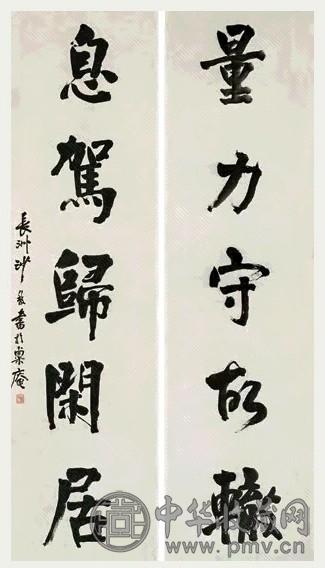 量力守故轍
息駕歸閑居
長洲沙書於庵
中华收藏网
www.pmv.cn